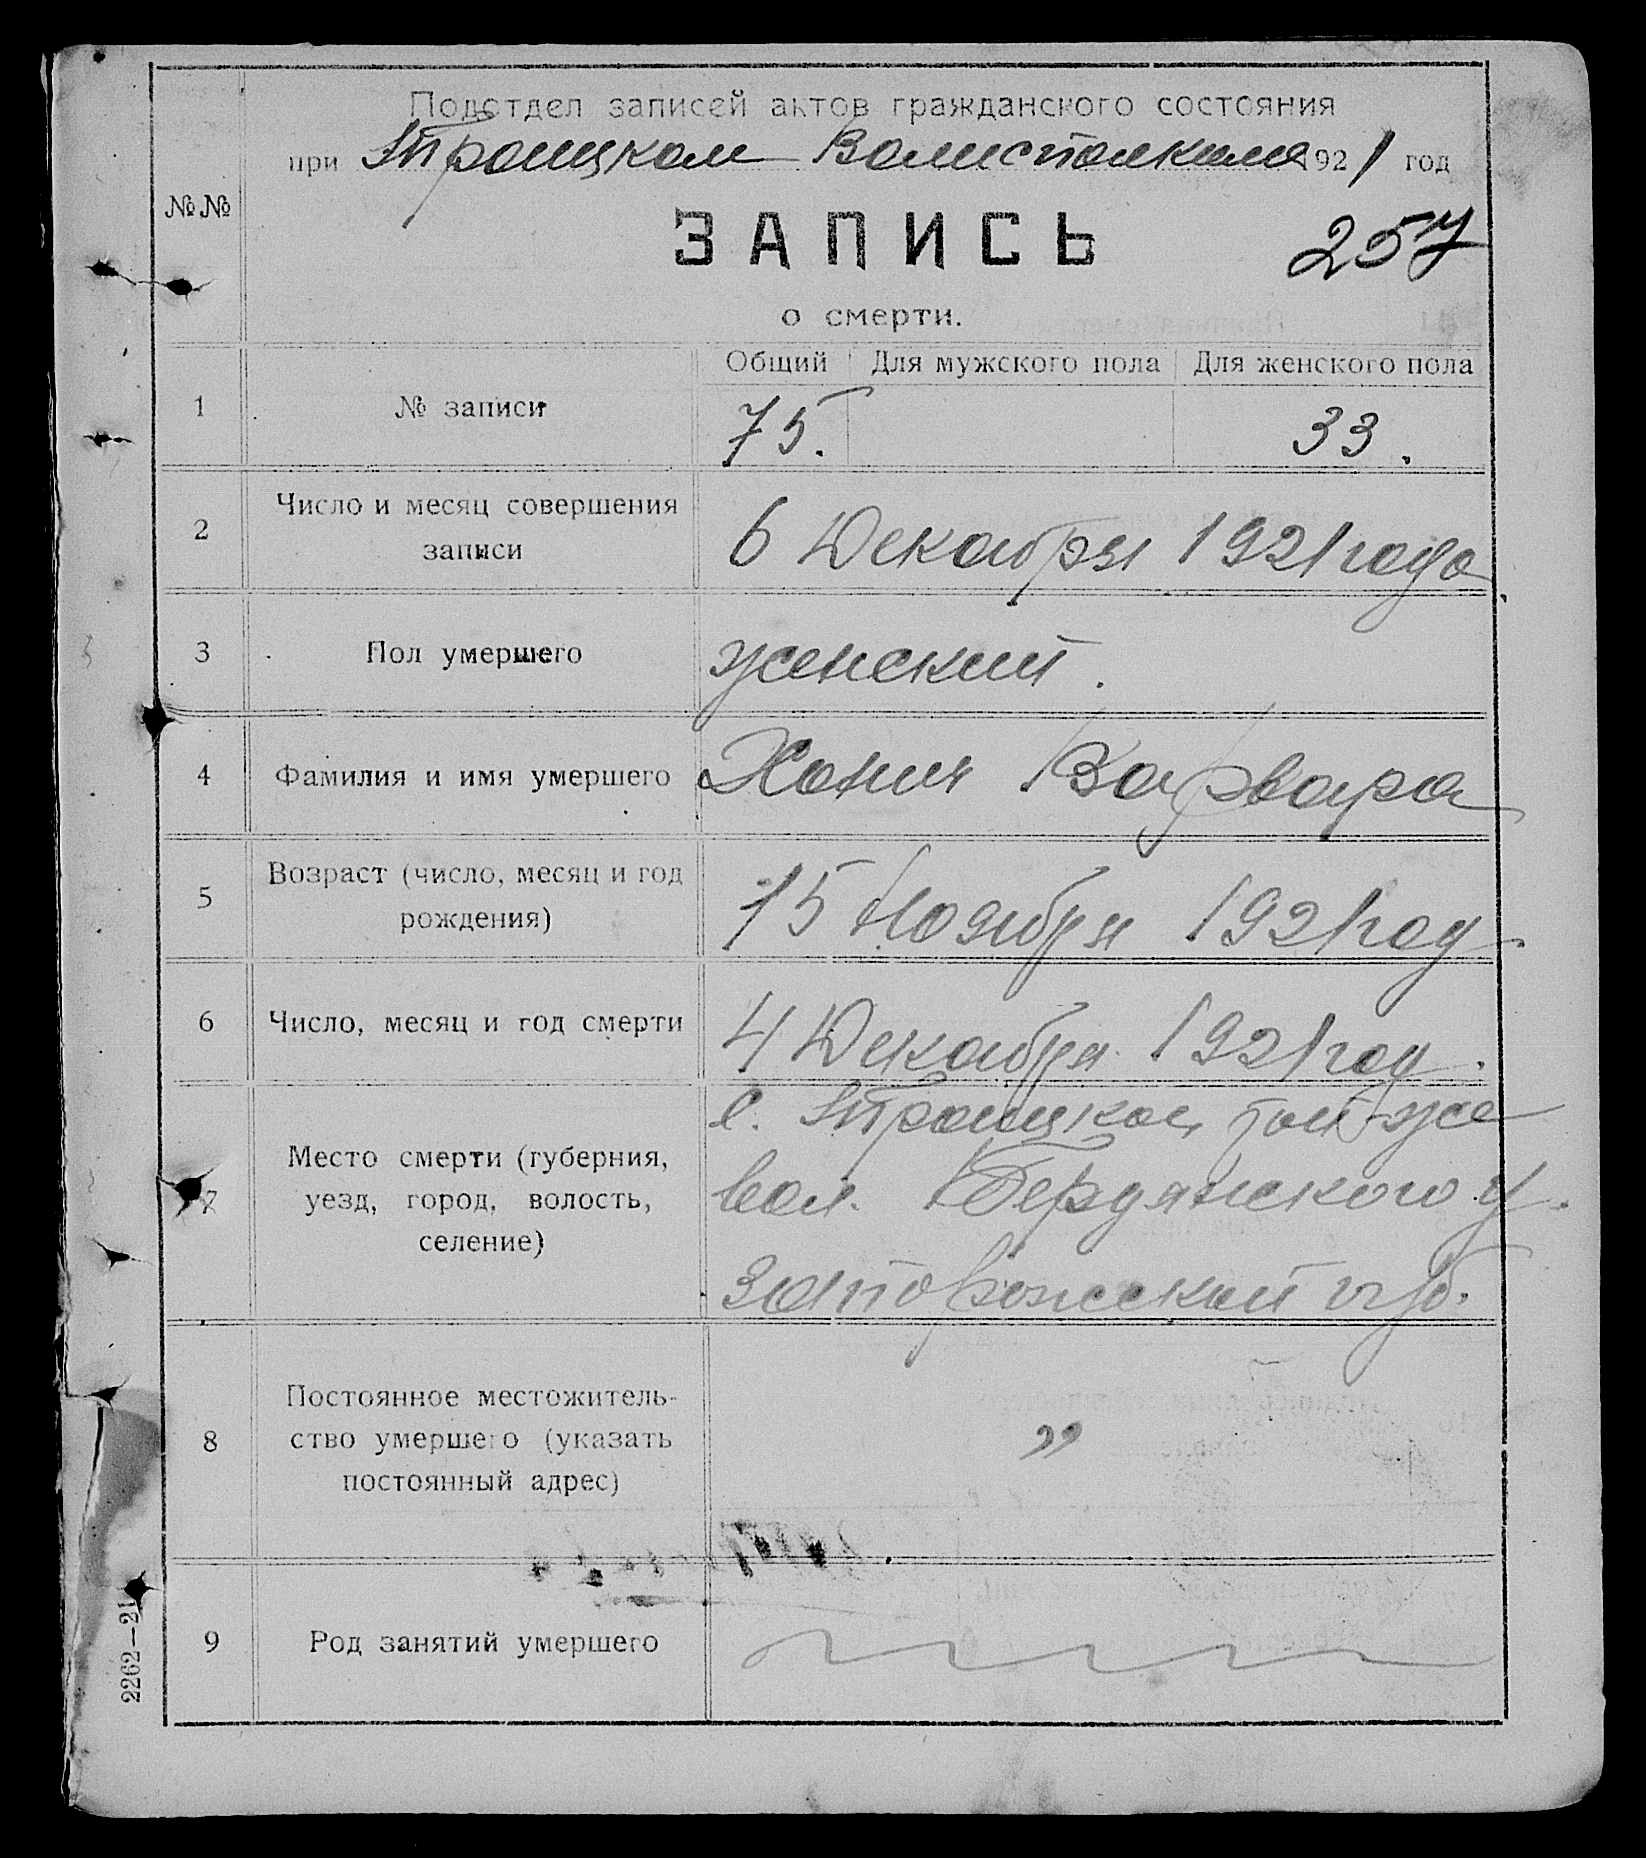 Подотдел записей актов гражданского состояния
при Троицком Волисполкоме 1921 год
№№
ЗАПИСЬ
257
о смерти.
Общий Для мужского пола Для женского пола
1 № записи 75. 33.
2 Число и месяц совершения
записи
6 Декабря 1921 года
3 Пол умершего женский.
4 Фамилия и имя умершего Варвара
5 Возраст (число, месяц и год
рождения)
15 Ноября 1921 год.
6 Число, месяц и год смерти 4 Декабря 1921 год.
7 Место смерти (губерния,
уезд, город, волость,
селение)
с. Троицкое, той-же
вол. Бердянского у.
Запорожский губ.
8 Постоянное местожитель-
ство умершего (указать
постоянный адрес)
„
9 Род занятий умершего
2262—21